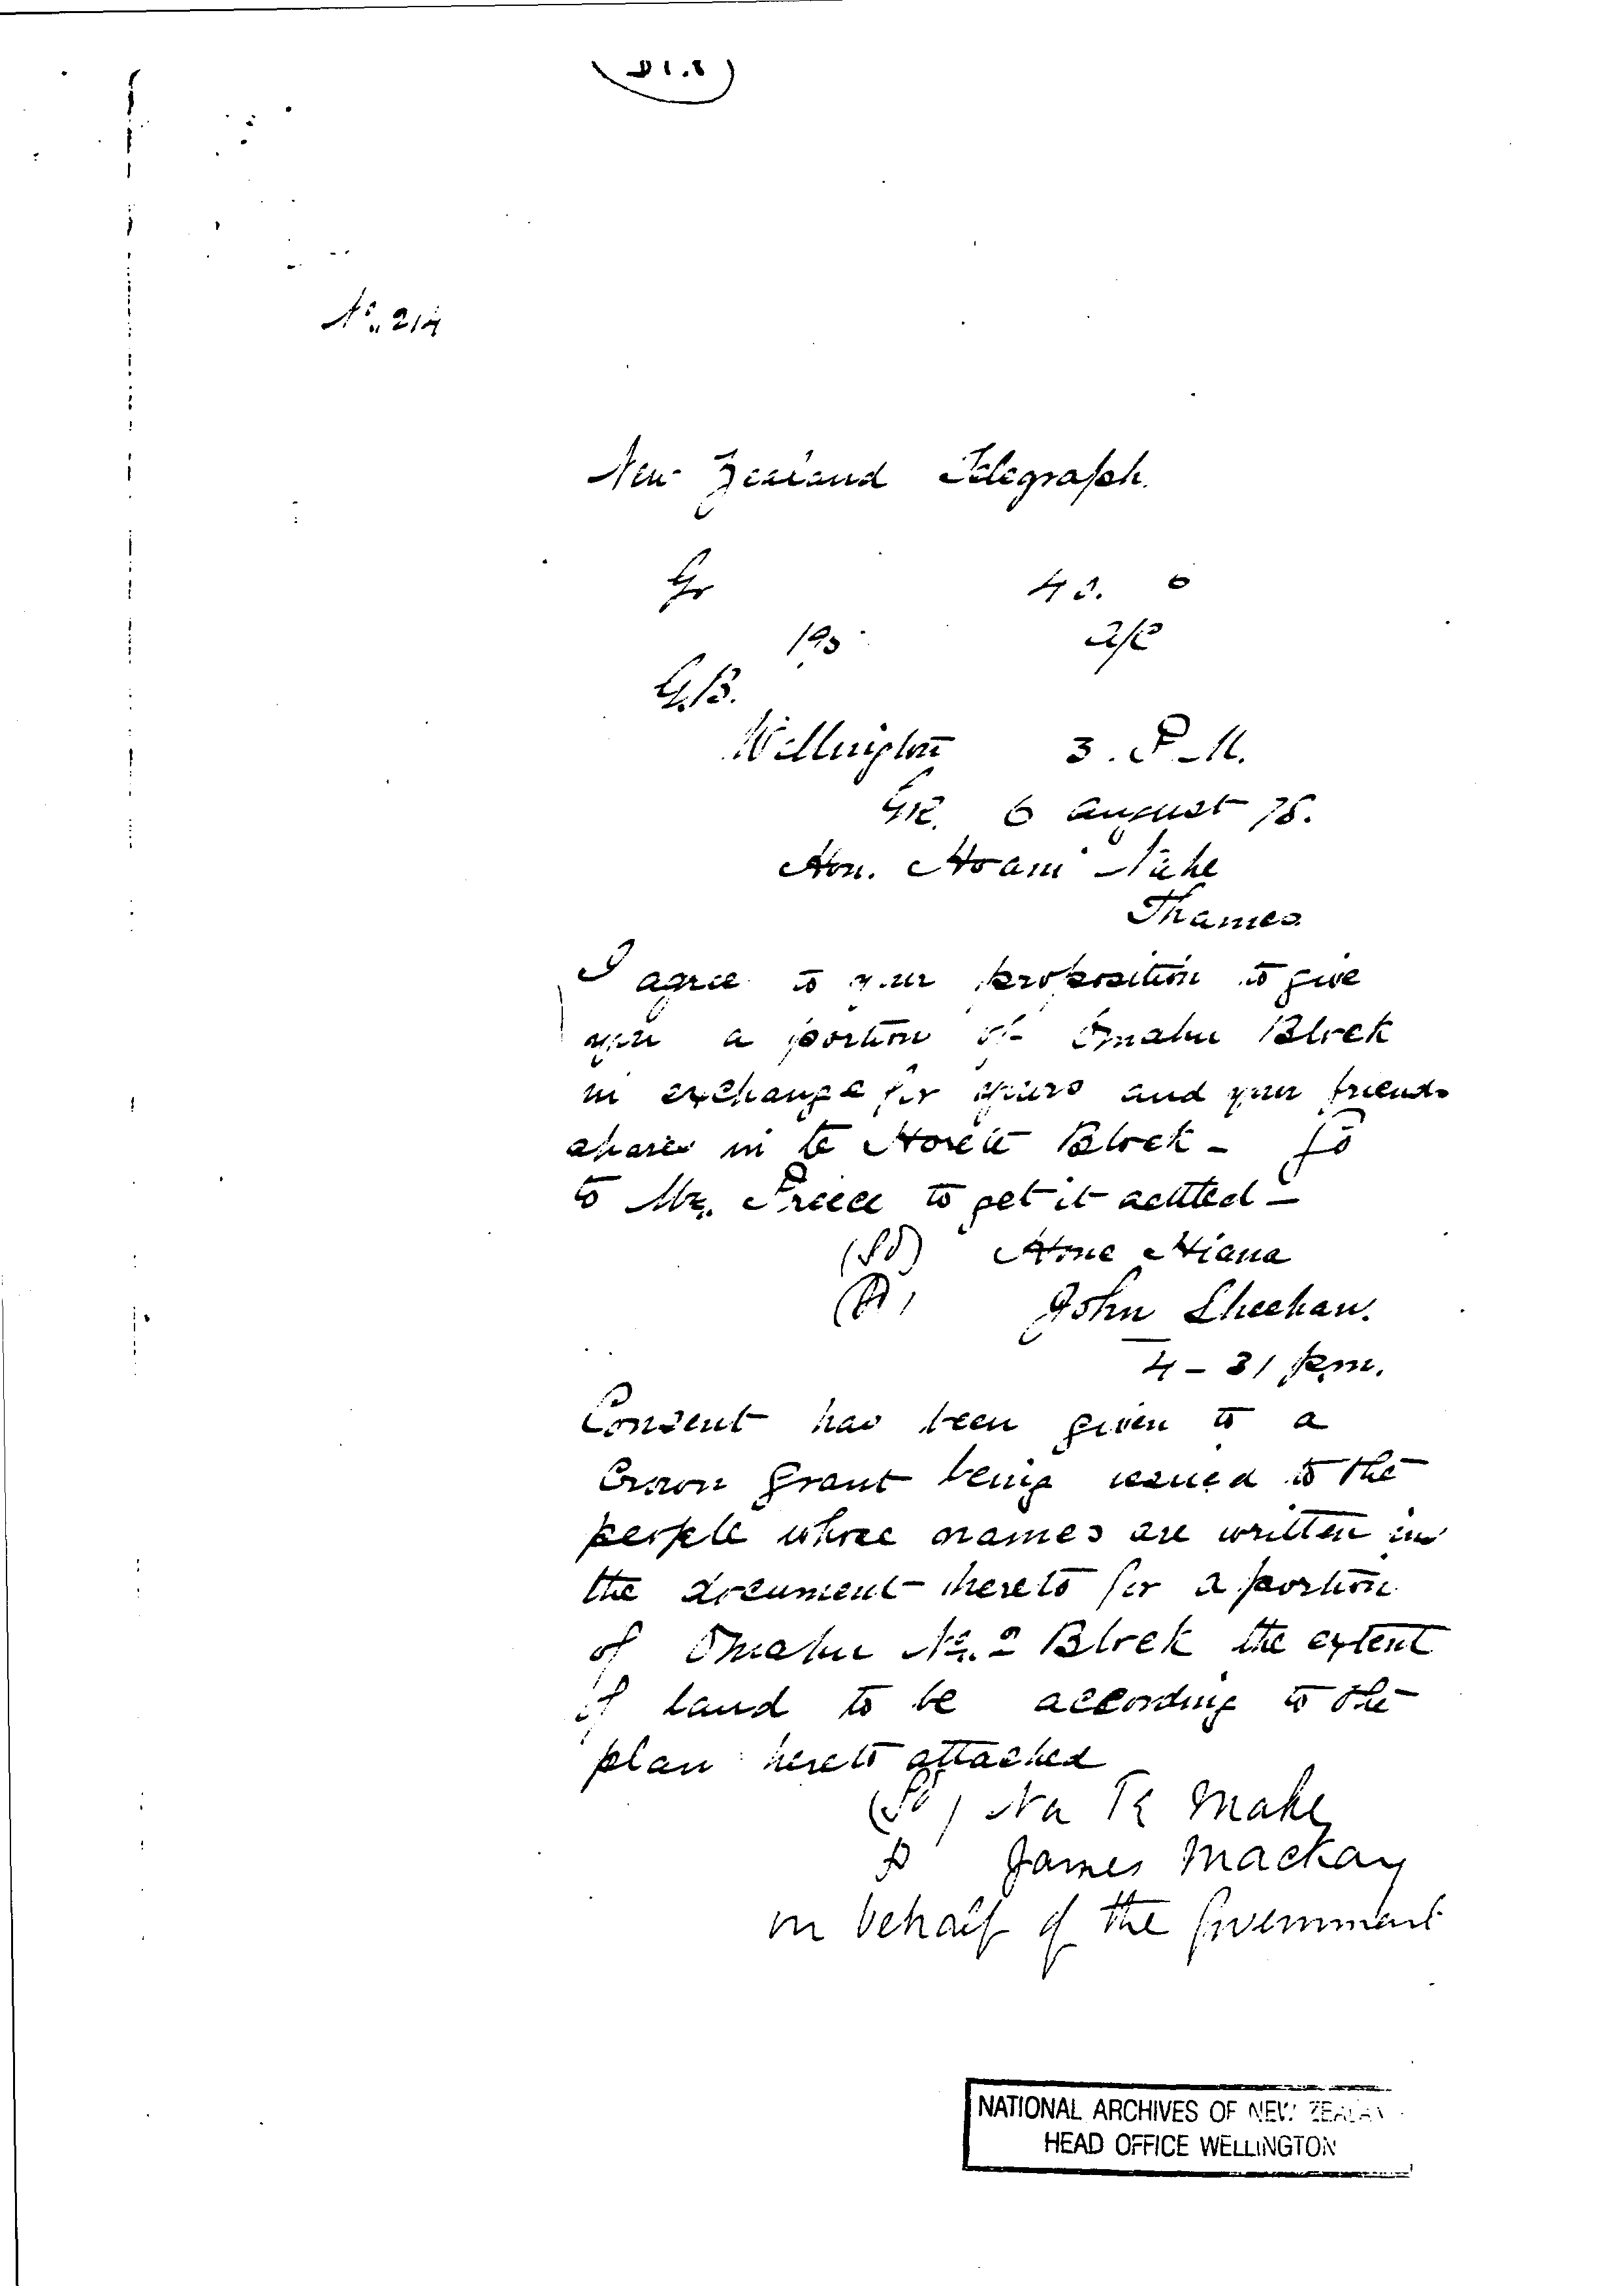 D1.8
No. 214
New Zealand Telegraph.
Gr
G.B.
Wellington 3. P.M.
6 August 78.
Hon. Hoani Nahe
Thames
I agree to your proposition to give
you a portion of Omahu Block
in exchange for yours and your friends
shares in te Horete Block - Go
to Mr. Preece to get it settled -
(Sd) Hone Hiana
John Sheehan.
4 - 31 p.m.
Consent has been given to a
Crown Grant being issued to the
people whose names are written in
the document hereto for a portion
of Omahu No. 2 Block the extent
of land to be according to the
plan hereto attached
(Sd) Na Te Make
James Mackay
on behalf of the Government
NATIONAL ARCHIVES OF NEW ZEALAN
HEAD OFFICE WELLINGTON